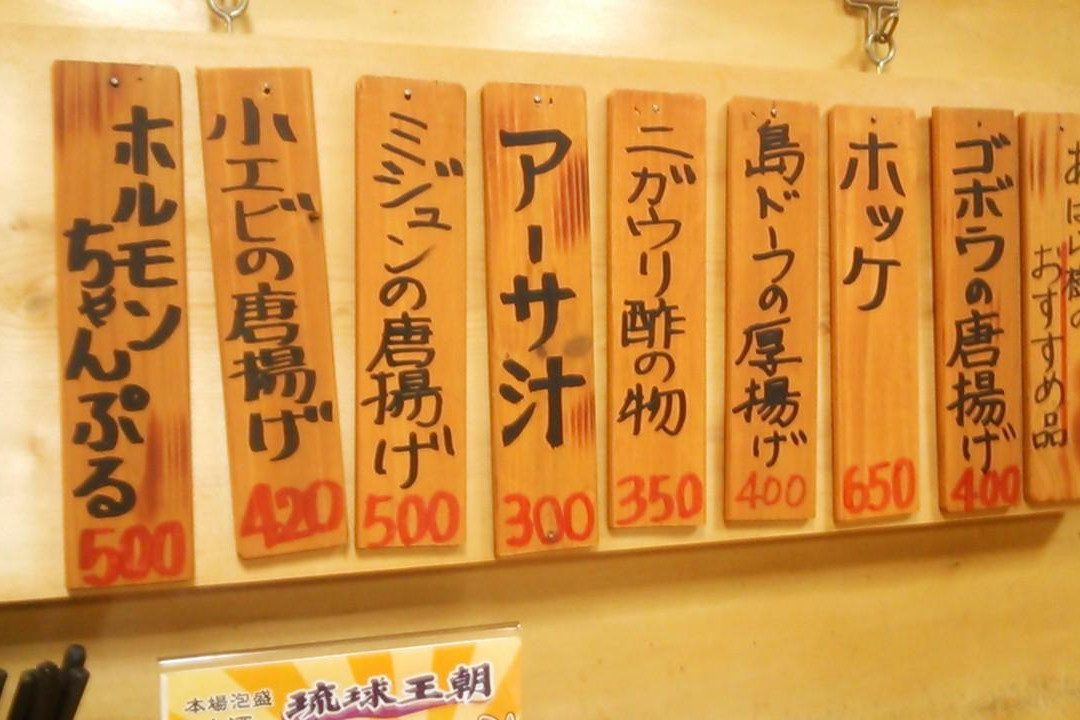 おすすめ品
ゴボウの唐揚げ
400
ホッケ
650
島ドーフの厚揚げ
400
ニガウリ酢の物
350
アーサ汁
300
ミジュンの唐揚げ
500
小エビの唐揚げ
420
ホルモン
ちゃんぷる
500
本場泡盛
琉球王朝